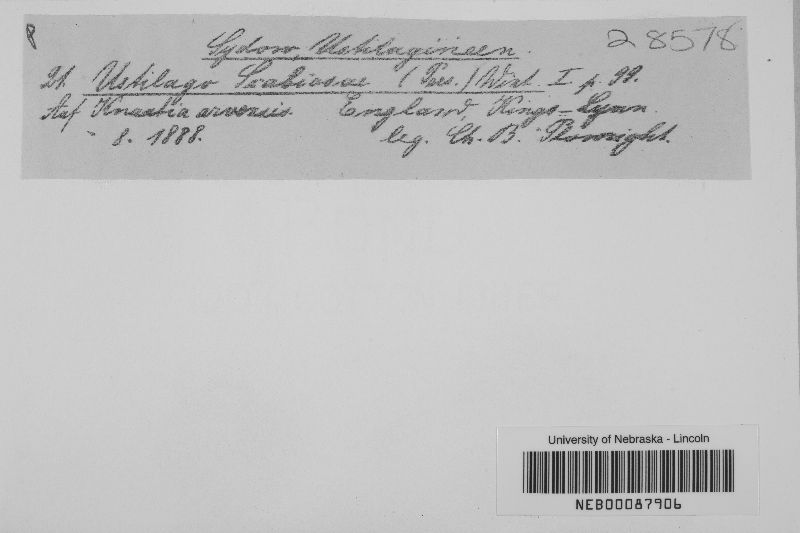 Sydow, Ustilagineen. 28578
21. Ustilago Scabiosae (Pers.) Wint. I p. 99.
Auf Knautia arvensis. England, Kings-Lynn.
8. 1888. leg. Ch. B. Plowright.
University of Nebraska - Lincoln
NEB00087906